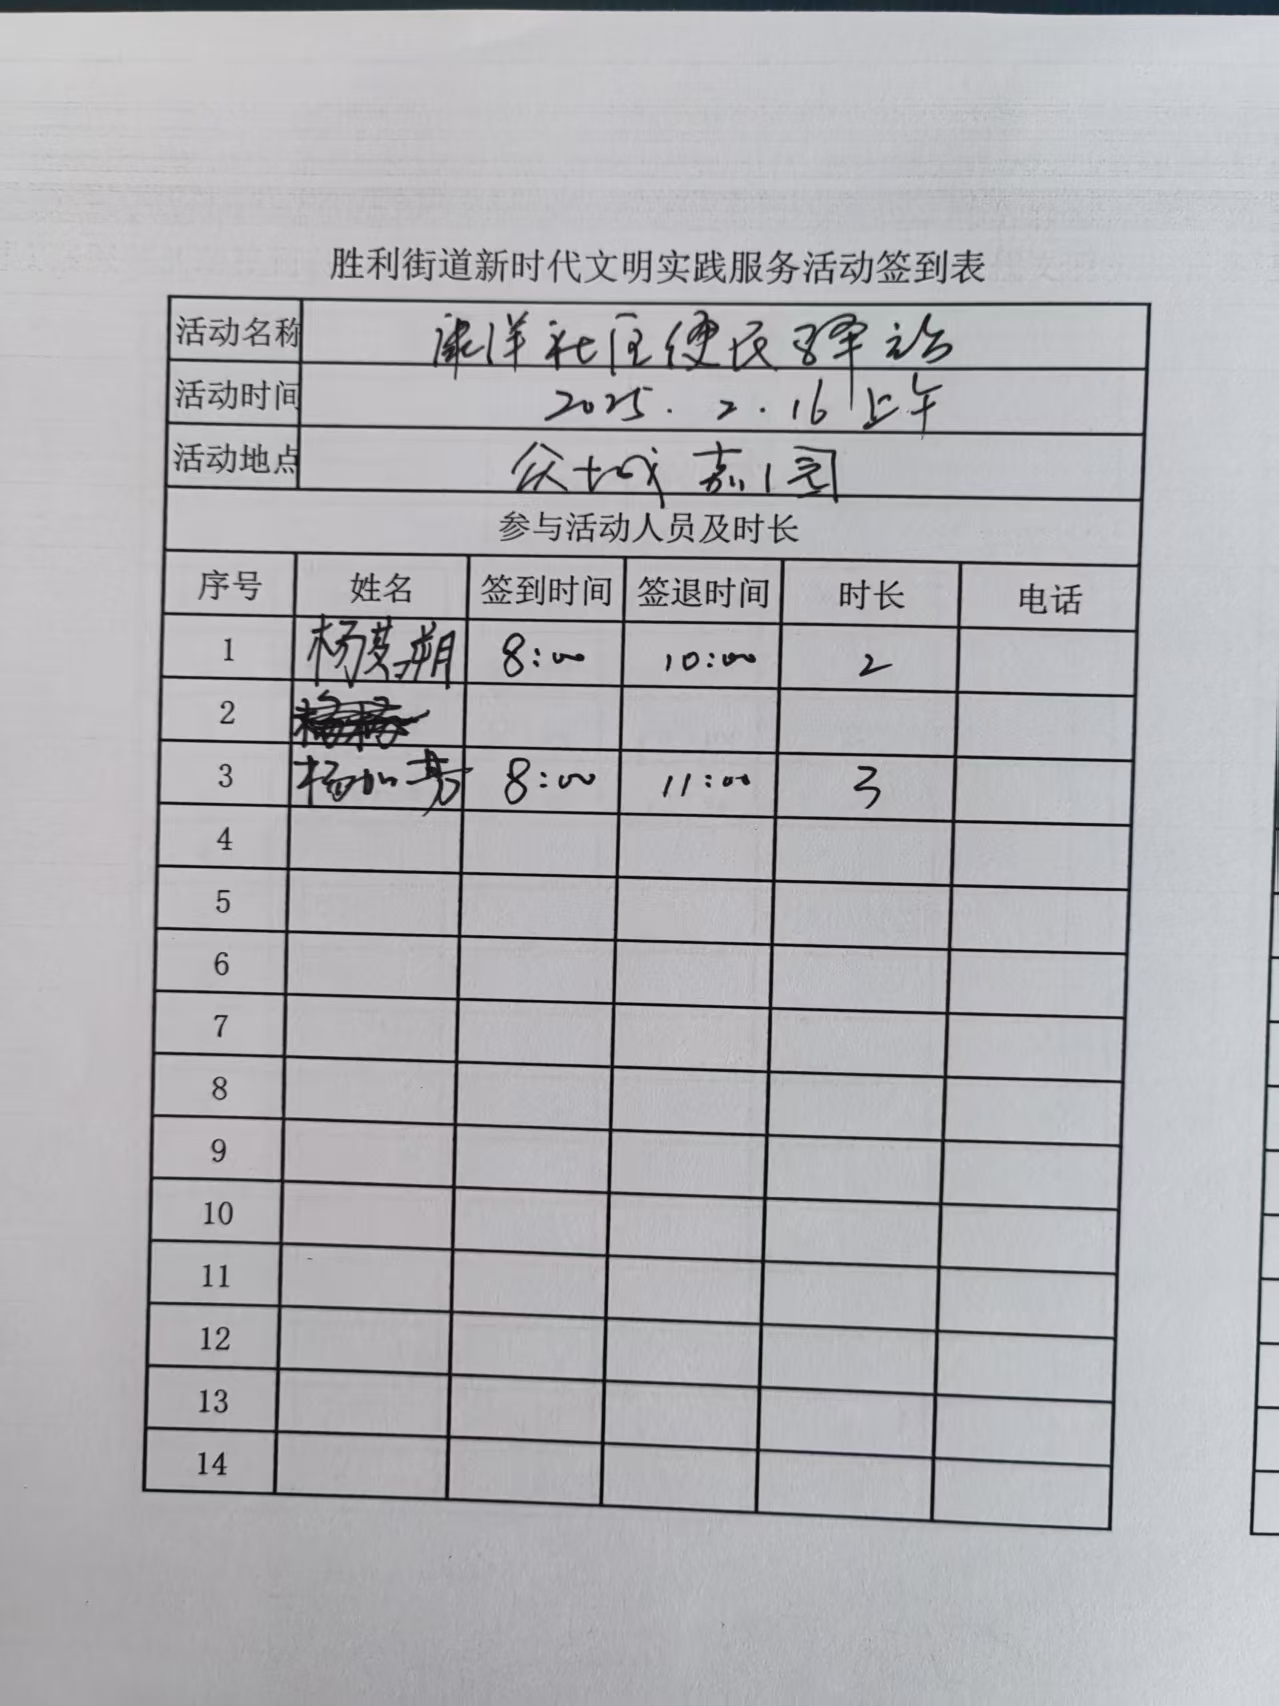 胜利街道新时代文明实践服务活动签到表
活动名称 康洋社区便民驿站
活动时间 2025.2.16上午
活动地点 众城嘉园
参与活动人员及时长
序号 姓名 签到时间 签退时间 时长 电话
1 杨梦翔 8:00 10:00 2
2
3 杨加勇 8:00 11:00 3
4
5
6
7
8
9
10
11
12
13
14